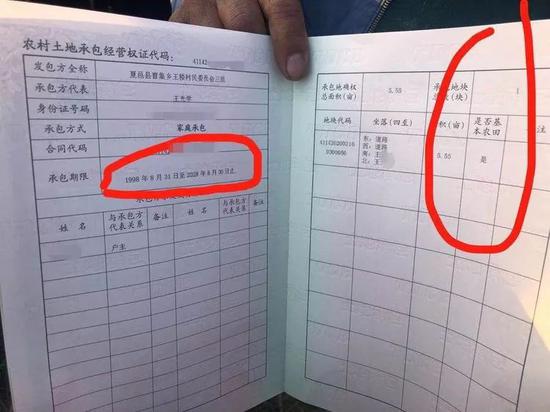 农村土地承包经营权证代码: 41142
发包方全称 夏邑县曹集乡王楼村民委员会三组
承包方代表 王光荣
身份证号码
承包方式 家庭承包
合同代码
承包期限 1998年8月31日至2028年8月30日止
姓名 与承包方代表关系 备注 姓名 与承包方代表关系 备注
户主
承包地确权总面积(亩) 5.55 承包地块总数(块) 1
地块代码 坐落(四至) 面积(亩) 是否基本农田 备注
东: 道路
西: 道路
南: 王
北: 王
5.55 是